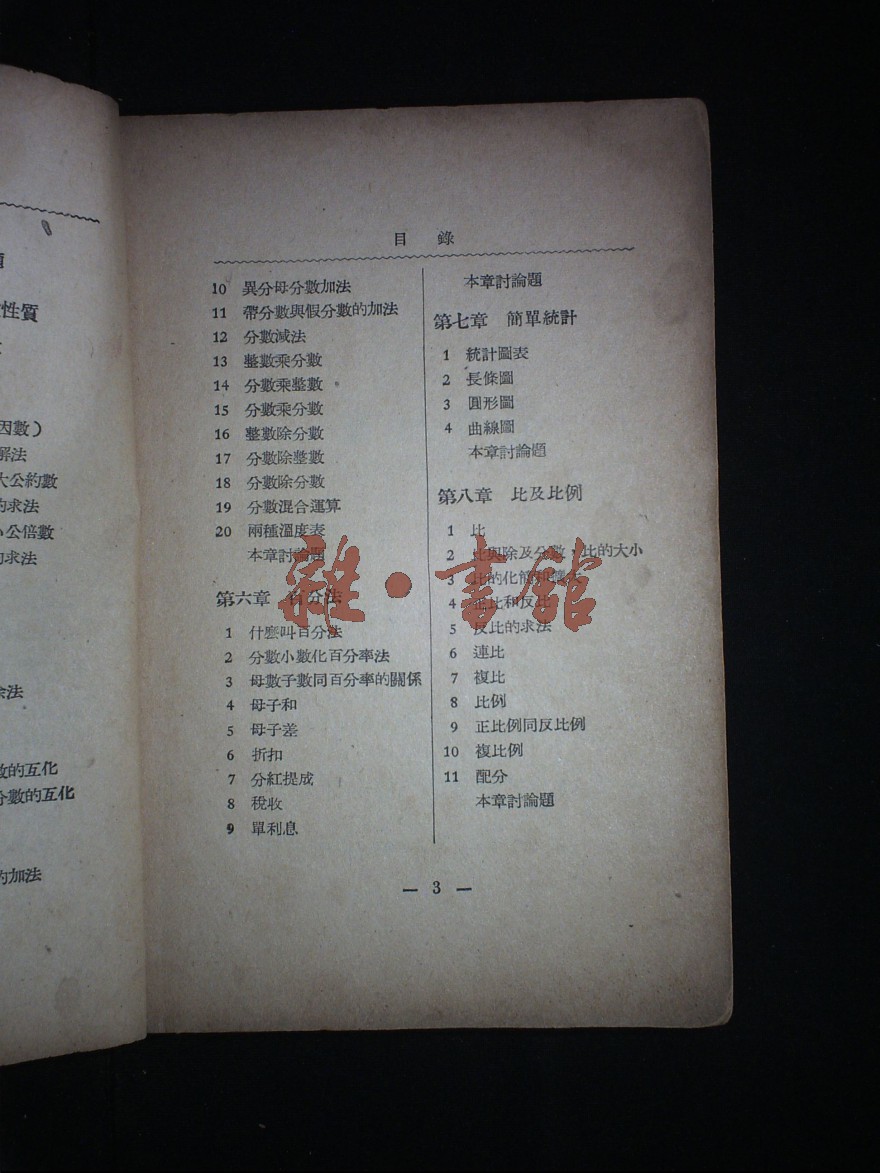 性質
因數）
解法
大公約數
的求法
小公倍數
的求法
余法
數的互化
分數的互化
的加法
目錄
10 異分母分數加法
11 帶分數與假分數的加法
12 分數減法
13 整數乘分數
14 分數乘整數
15 分數乘分數
16 整數除分數
17 分數除整數
18 分數除分數
19 分數混合運算
20 兩種溫度表
本章討論題
第六章 百分法
1 什麽叫百分法
2 分數小數化百分率法
3 母數子數同百分率的關係
4 母子和
5 母子差
6 折扣
7 分紅提成
8 稅收
9 單利息
本章討論題
第七章 簡單統計
1 統計圖表
2 長條圖
3 圓形圖
4 曲線圖
本章討論題
第八章 比及比例
1 比
2 比與除及分數，比的大小
3 比的化簡和
4 正比和反比
5 反比的求法
6 連比
7 複比
8 比例
9 正比例同反比例
10 複比例
11 配分
本章討論題
— 3 —
雜·書館